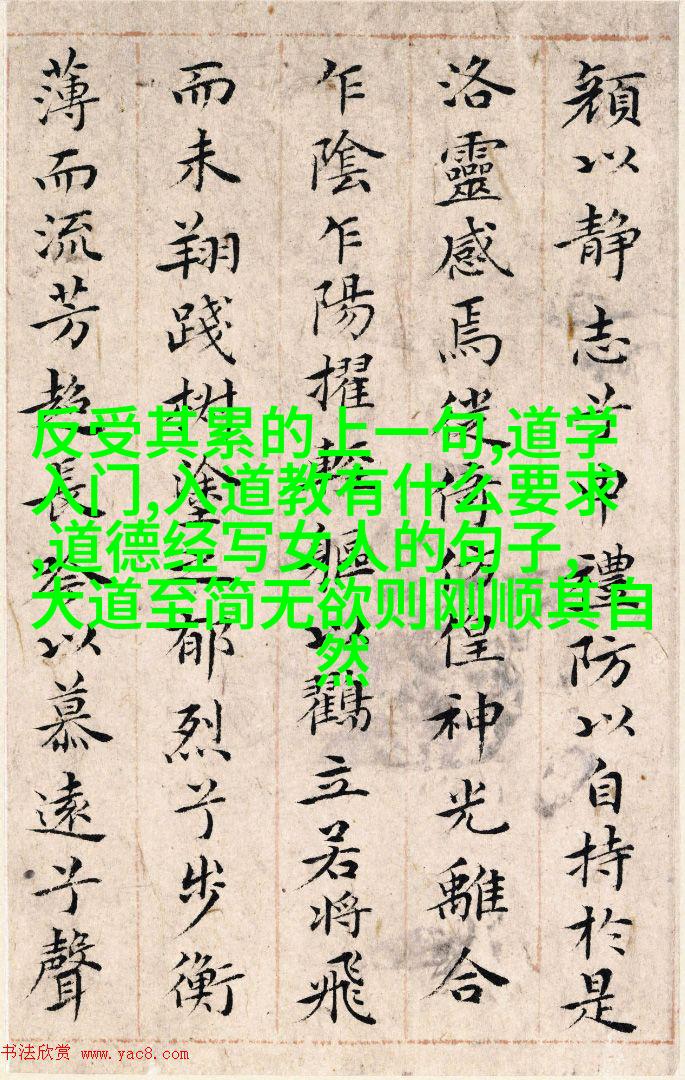 顔以静志兮申禮防以自持於是
洛靈感焉徙倚彷徨神光離合
乍陰乍陽擢輕軀以鸖立若將飛
而未翔踐椒塗之郁烈兮步衡
薄而流芳超長吟以慕遠兮聲
反受其累的上一句,道学
入门,入道教有什么要求
,道德经写女人的句子,
大道至简无欲则刚顺其自
然
书法欣赏 www.yac8.com